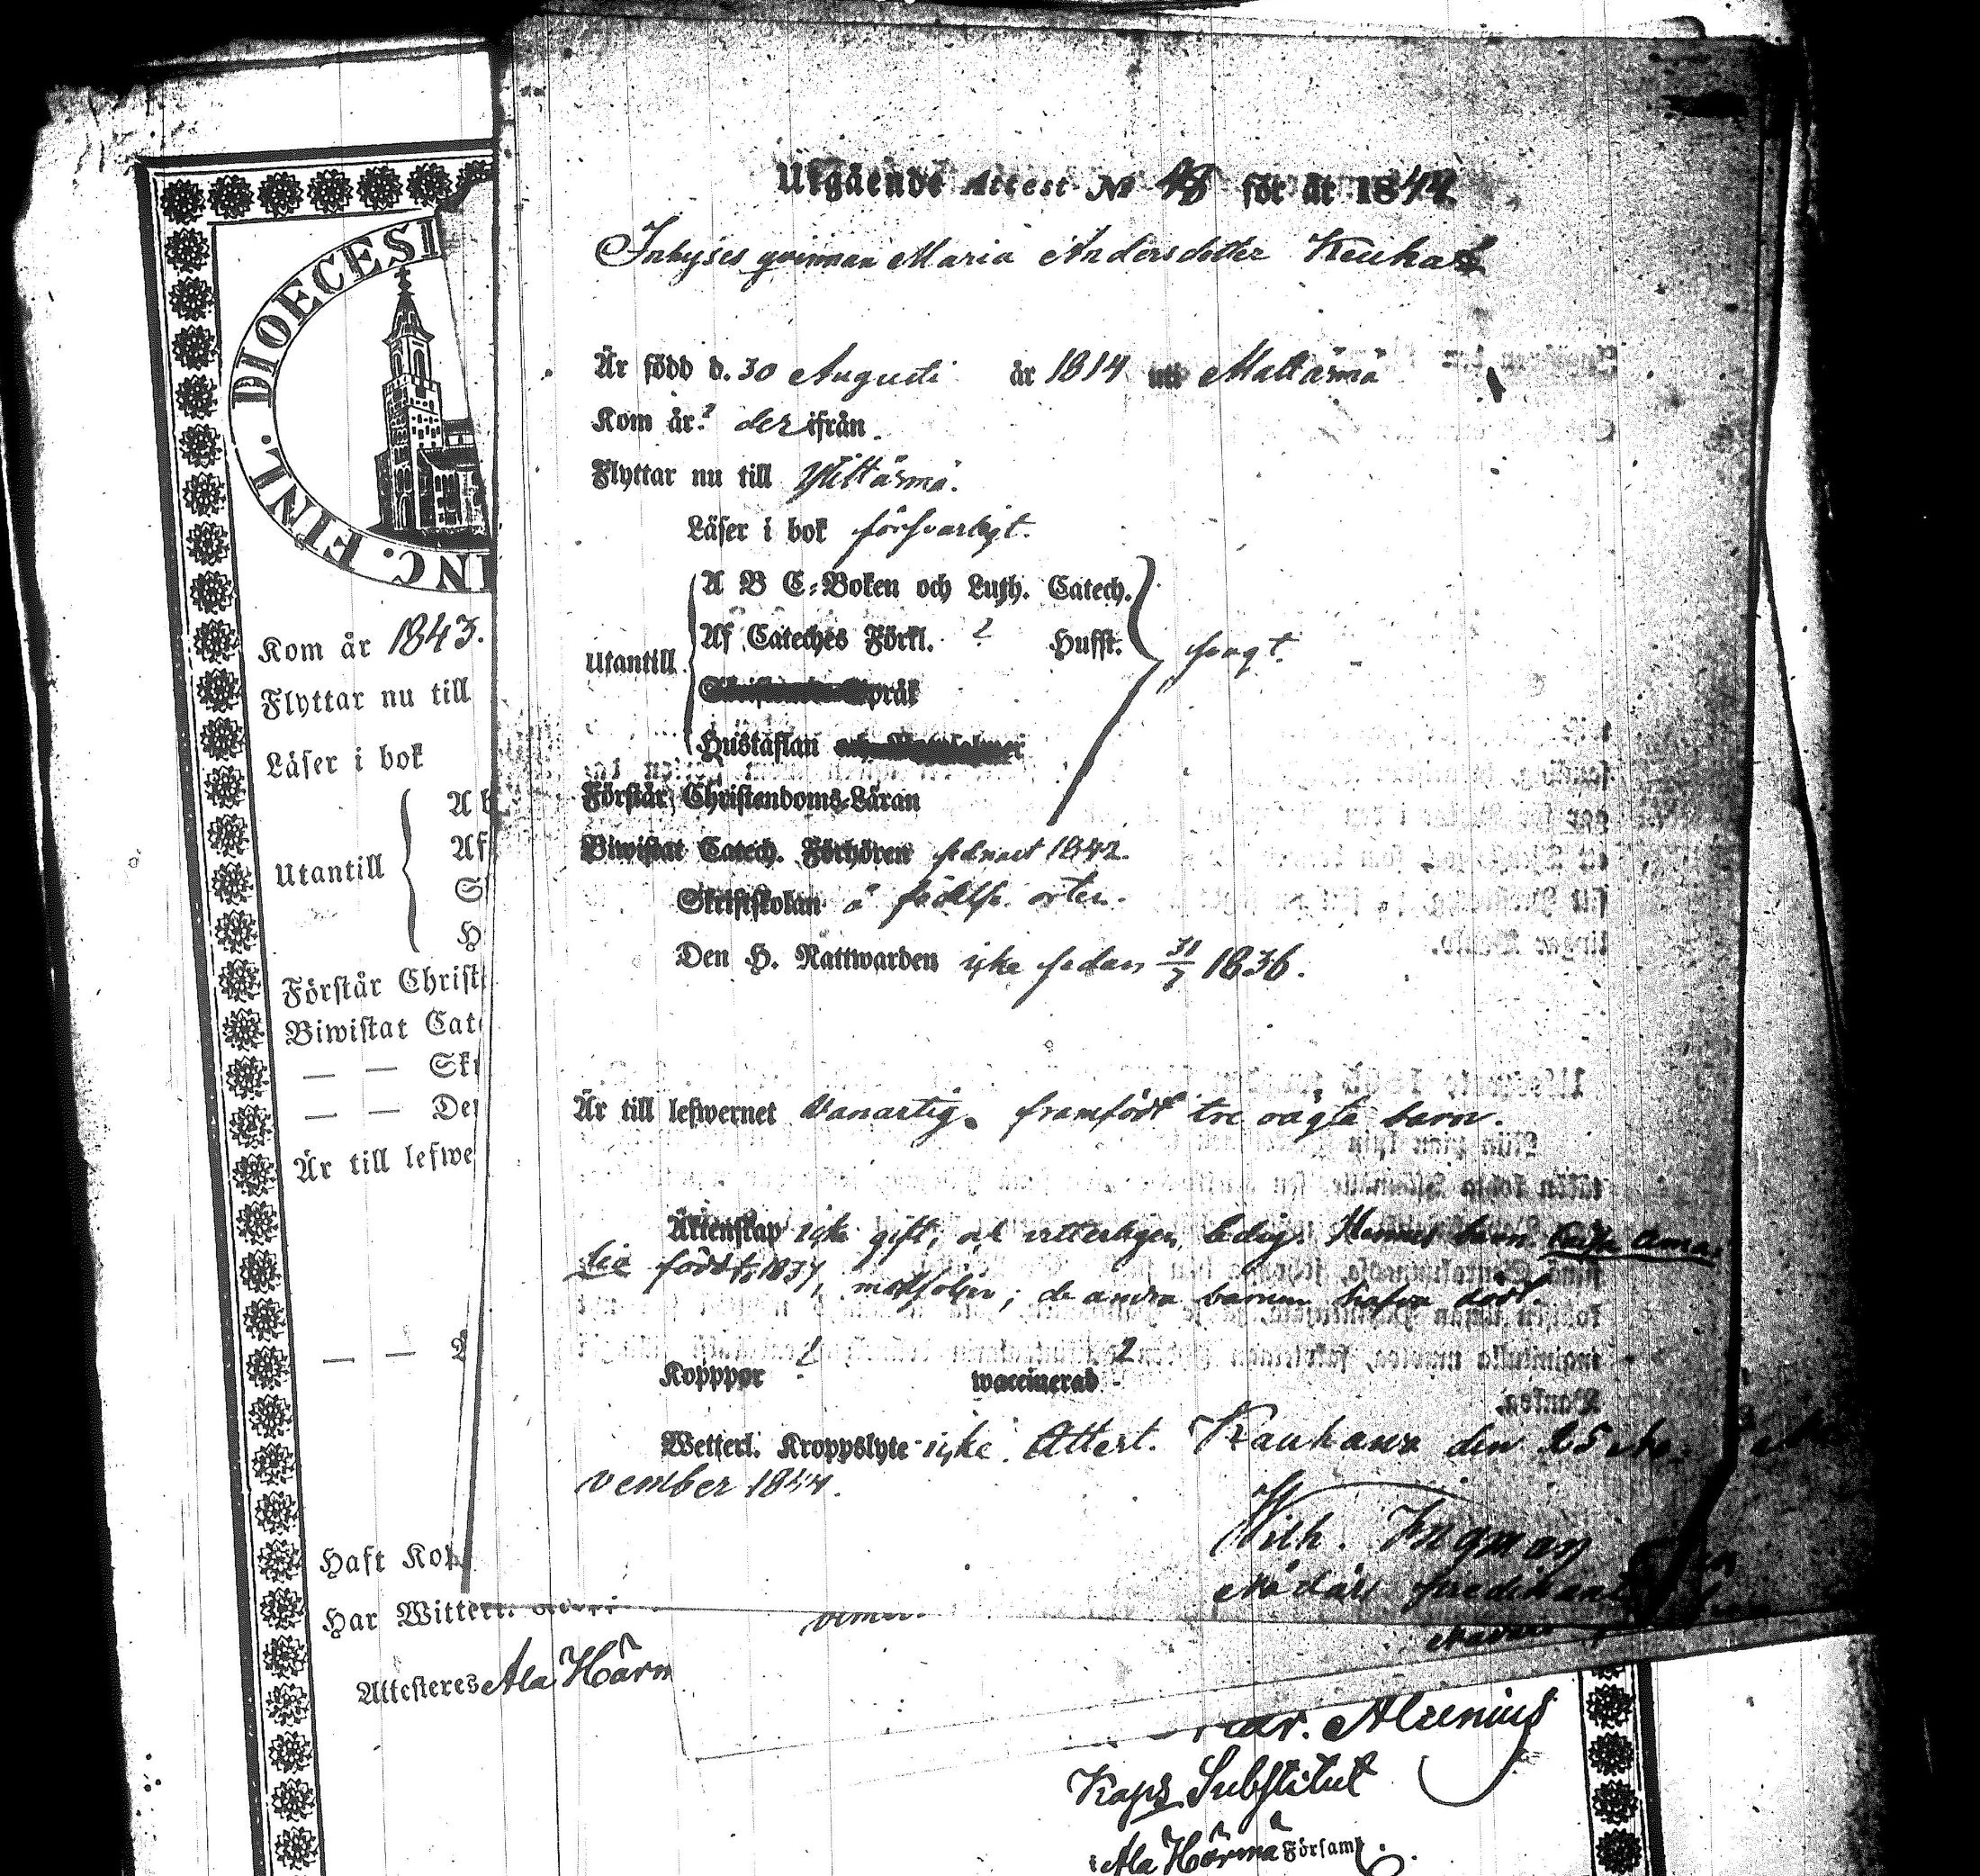 Utgående Attest № 48 för år 1844.
Inhyses qvinnan Maria Andersdotter
Är född d. 30 Augusti år 1814 uti
Kom år ? derifrån.
Flyttar nu till
Läser i bok försvarligt.
A B C-Boken och Luth. Catech.
Af Cateches Förkl. ? Husst. svagt.
Utantill
Språk
Hustaflan
Förstår Christendoms-Läran
Biwistat Catech. Förhören 1842.
Skriftskolan å födelse orten.
Den H. Nattwarden icke sedan 31/7 1836.
Är till lefwernet Vanartig. framfödt tre oägta barn.
Äktenskap icke gift, och vetterligen ledig. Hennes barn Amalie
född 1837, medföljer; de andra barnen hafva dödt.
Kopppor ? waccinerad ?
Wetterl. Kroppslyte icke. Attest. Kauhawa den 25 No-
vember 1844.
Wilh. Ingman
DIOECESI
INC. FINL.
Kom år 1843.
Flyttar nu till
Läser i bok
Ab
Af
Utantill
S
H
Förstår Christ
Biwistat Cat
— — Skr
— — De
Är till lefwe
— —
Haft Kop
Har Witterl.
Attesteres Ala Härm
Alcenius
Kaps Substitut
i Ala Härmä Församl.